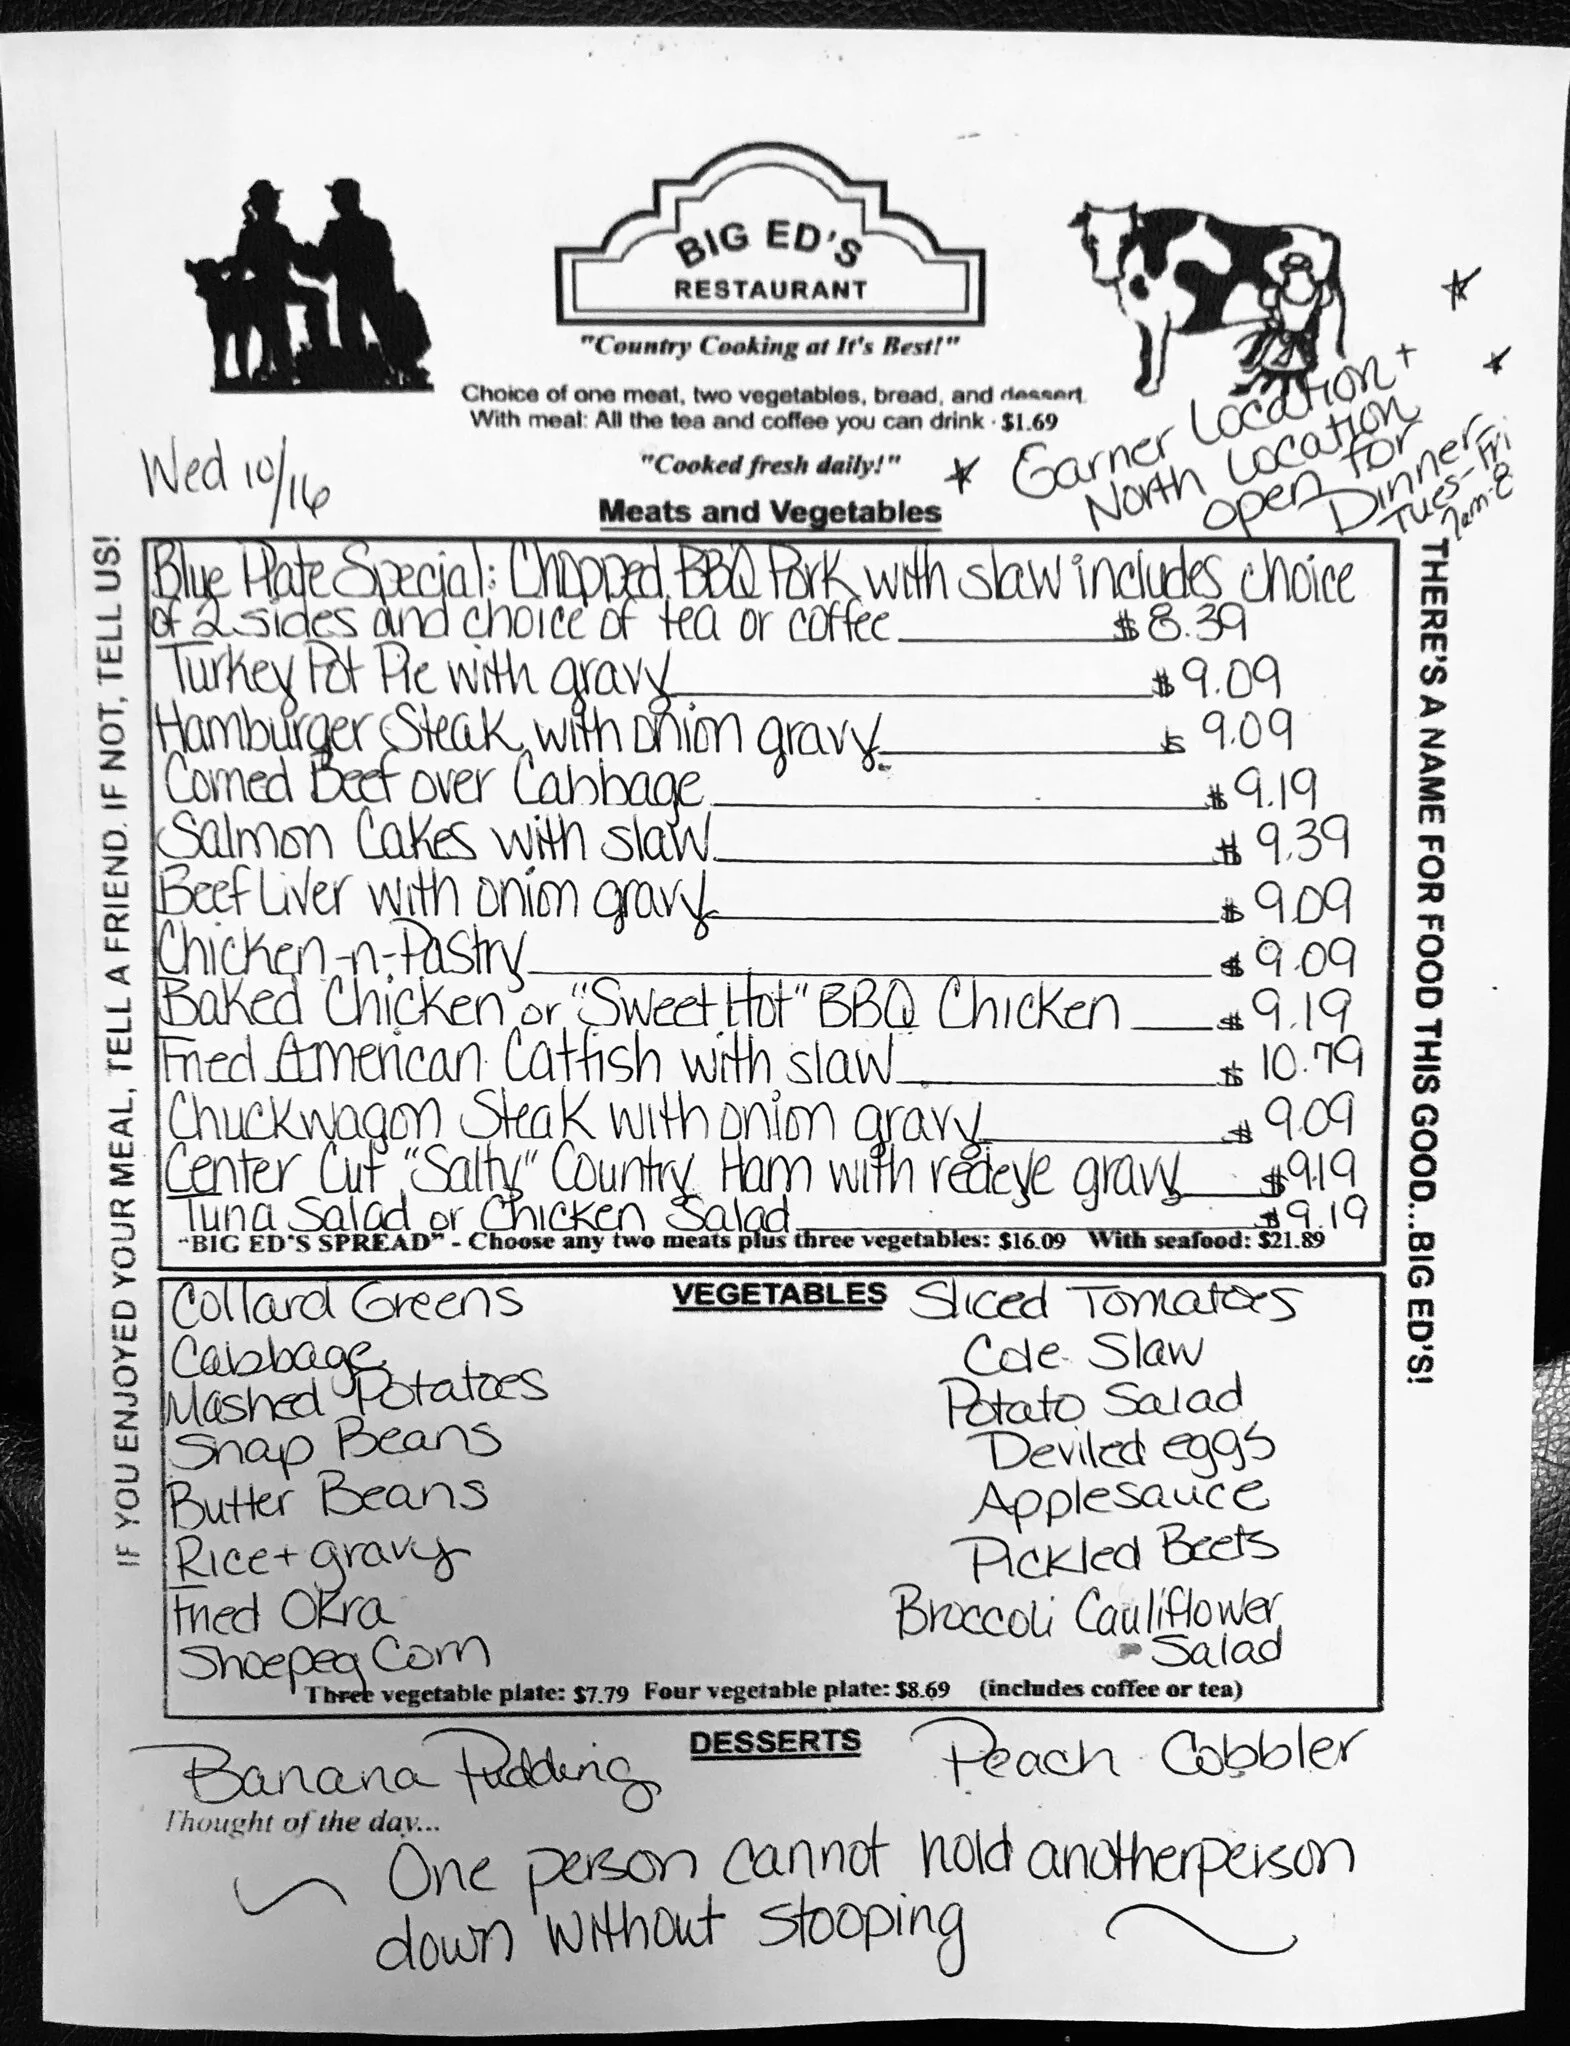 BIG ED'S
RESTAURANT
"Country Cooking at It's Best!"
Choice of one meat, two vegetables, bread, and dessert
With meal: All the tea and coffee you can drink · $1.69
"Cooked fresh daily!"
Wed 10/16
Garner Location +
North Location
open for
Dinner
Tues-Fri
7am-8
Meats and Vegetables
IF YOU ENJOYED YOUR MEAL, TELL A FRIEND. IF NOT, TELL US!
THERE'S A NAME FOR FOOD THIS GOOD...BIG ED'S!
Blue Plate Special: Chopped BBQ Pork with slaw includes choice
of 2 sides and choice of tea or coffee $8.39
Turkey Pot Pie with gravy $9.09
Hamburger Steak with onion gravy $9.09
Corned Beef over Cabbage $9.19
Salmon Cakes with slaw $9.39
Beef Liver with onion gravy $9.09
Chicken-n-Pastry $9.09
Baked Chicken or "Sweet Hot" BBQ Chicken $9.19
Fried American Catfish with slaw $10.79
Chuckwagon Steak with onion gravy $9.09
Center Cut "Salty" Country Ham with redeye gravy $9.19
Tuna Salad or Chicken Salad $9.19
"BIG ED'S SPREAD" - Choose any two meats plus three vegetables: $16.09 With seafood: $21.89
VEGETABLES
Collard Greens
Cabbage
Mashed Potatoes
Snap Beans
Butter Beans
Rice + gravy
Fried Okra
Shoepeg Corn
Sliced Tomatoes
Cole Slaw
Potato Salad
Deviled eggs
Applesauce
Pickled Beets
Broccoli Cauliflower
Salad
Three vegetable plate: $7.79 Four vegetable plate: $8.69 (includes coffee or tea)
DESSERTS
Banana Pudding
Peach Cobbler
Thought of the day...
One person cannot hold another person
down without stooping